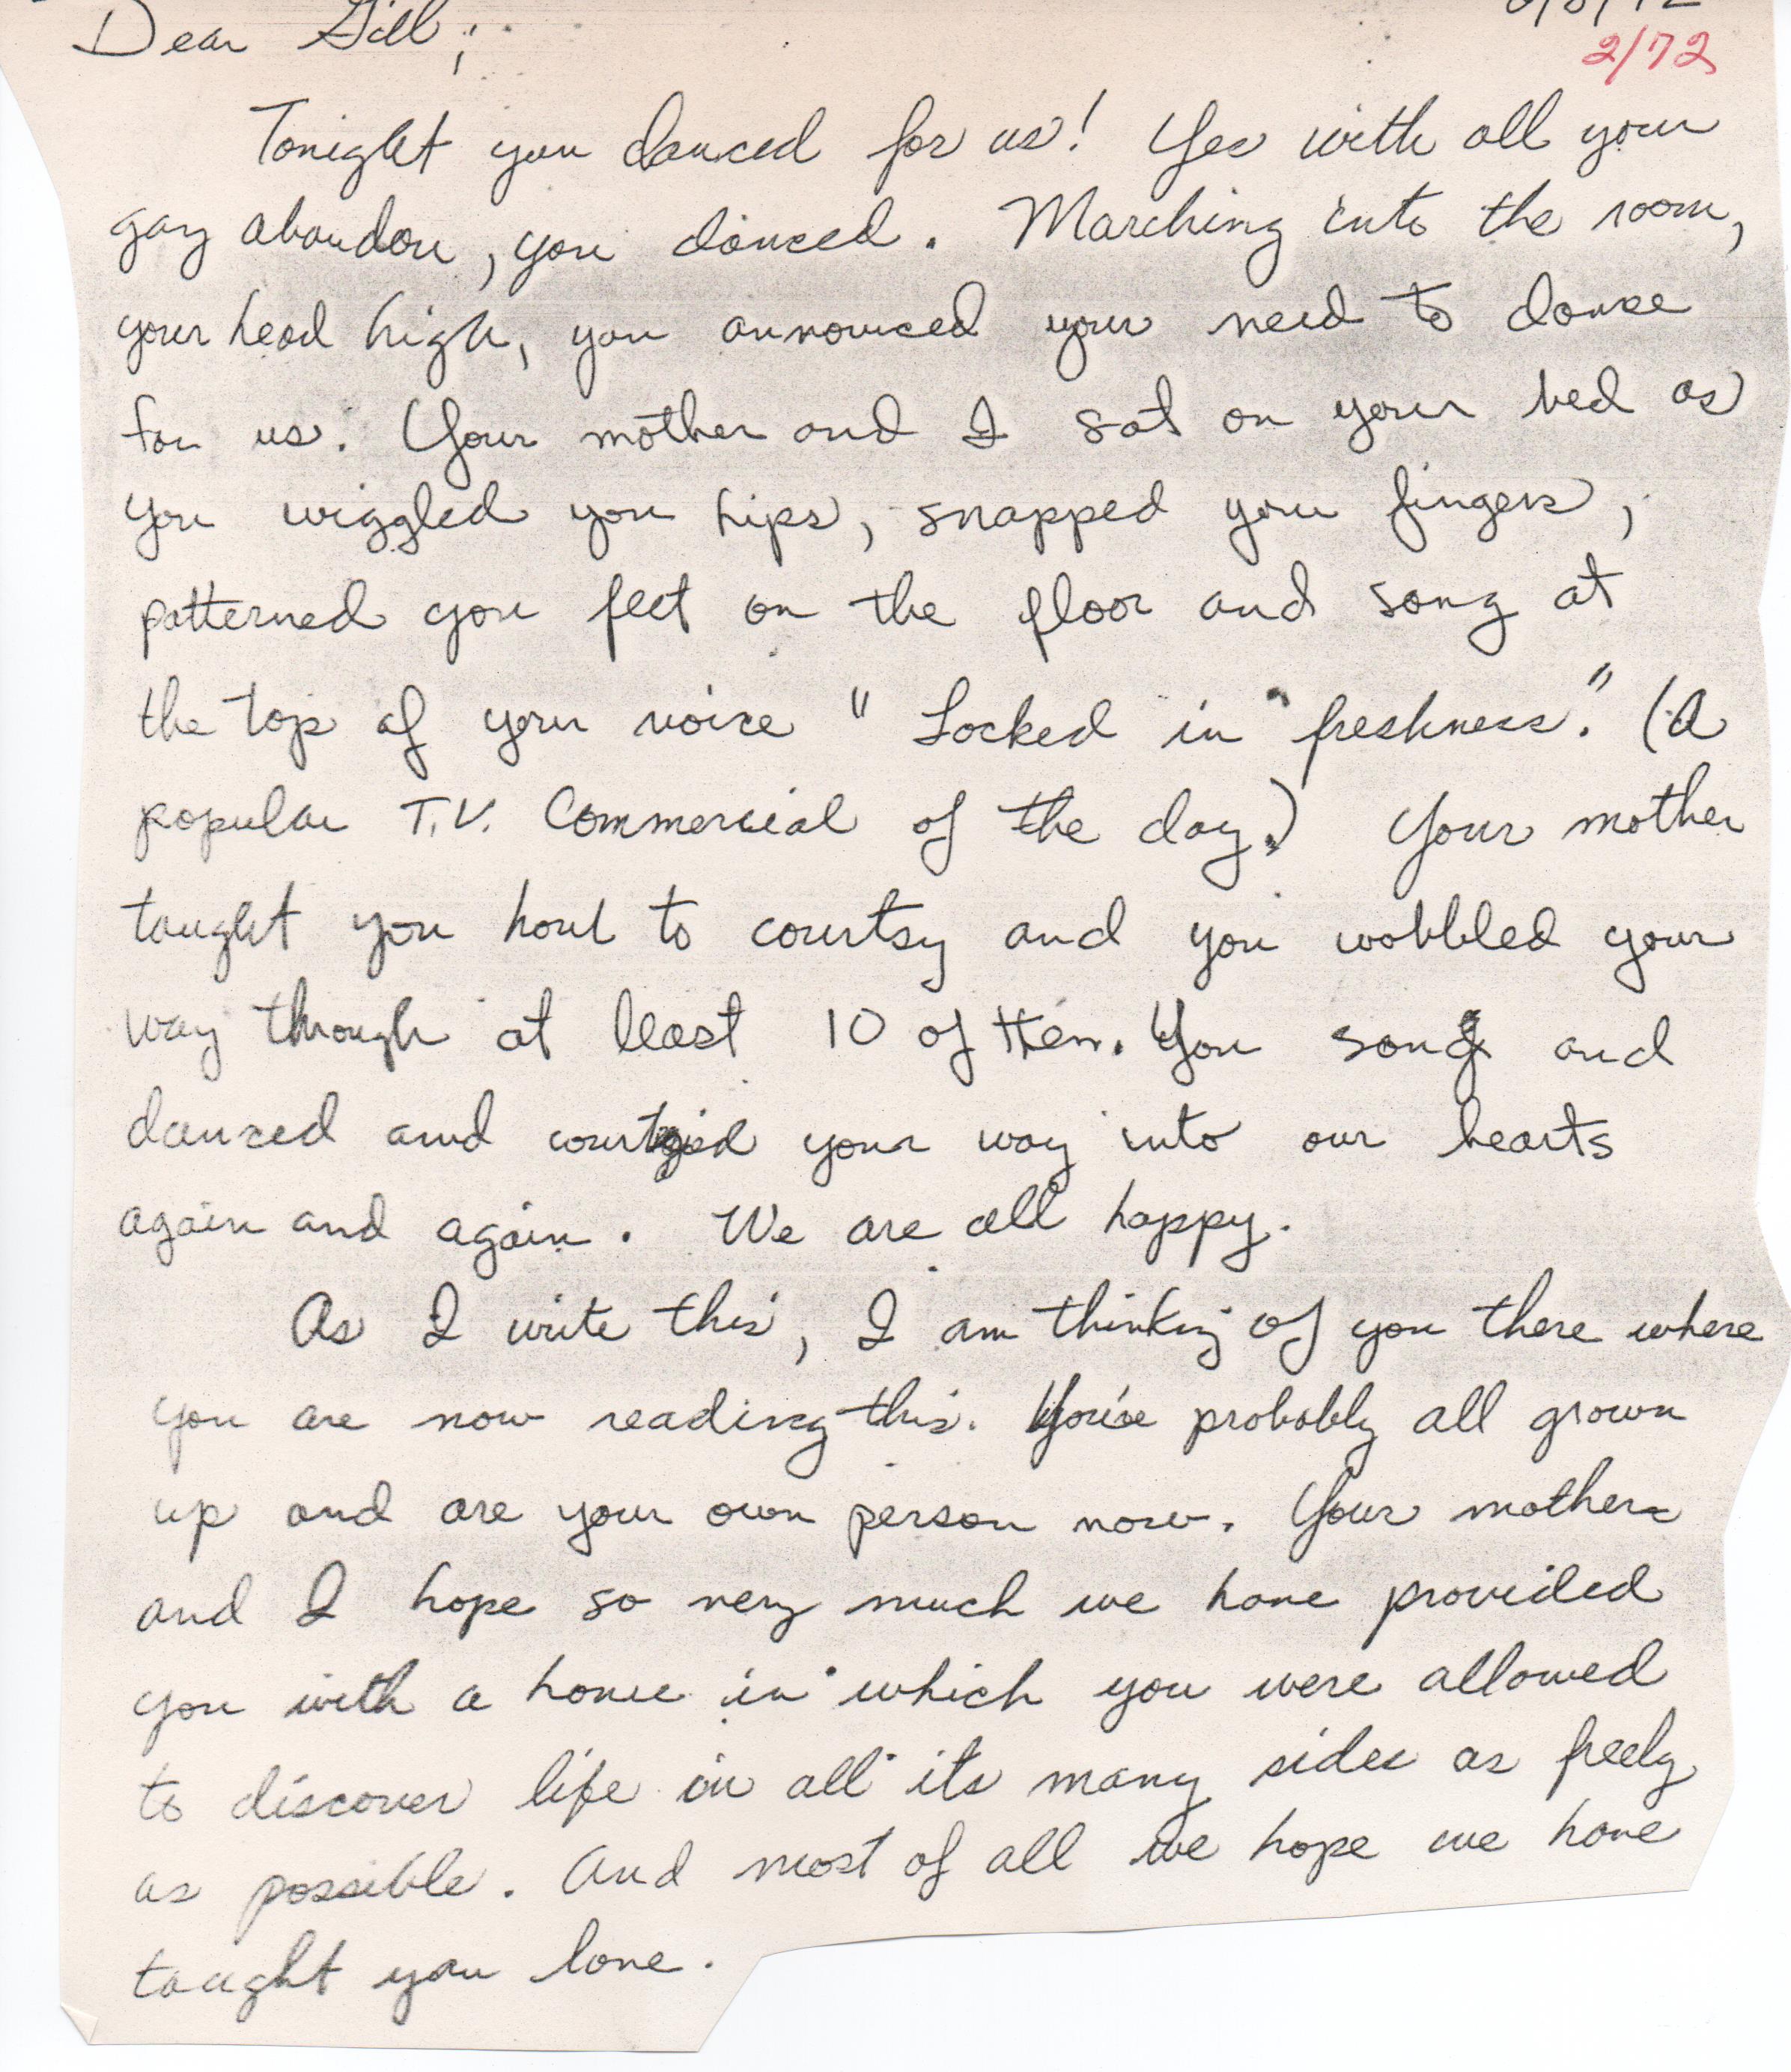 Dear Gill;
2/72
Tonight you danced for us! Yes with all your
gay abandon, you danced. Marching into the room,
your head high, you announced your need to dance
for us. Your mother and I sat on your bed as
you wiggled you hips, snapped your fingers,
patterned you feet on the floor and sang at
the top of your voice "Locked in freshness." (A
popular T.V. Commercial of the day.) Your mother
taught you how to courtsy and you wobbled your
way through at least 10 of them. You sang and
danced and courtsied your way into our hearts
again and again. We are all happy.
As I write this, I am thinking of you there where
you are now reading this. You're probably all grown
up and are your own person now. Your mother
and I hope so very much we have provided
you with a home in which you were allowed
to discover life in all its many sides as freely
as possible. And most of all we hope we have
taught you love.